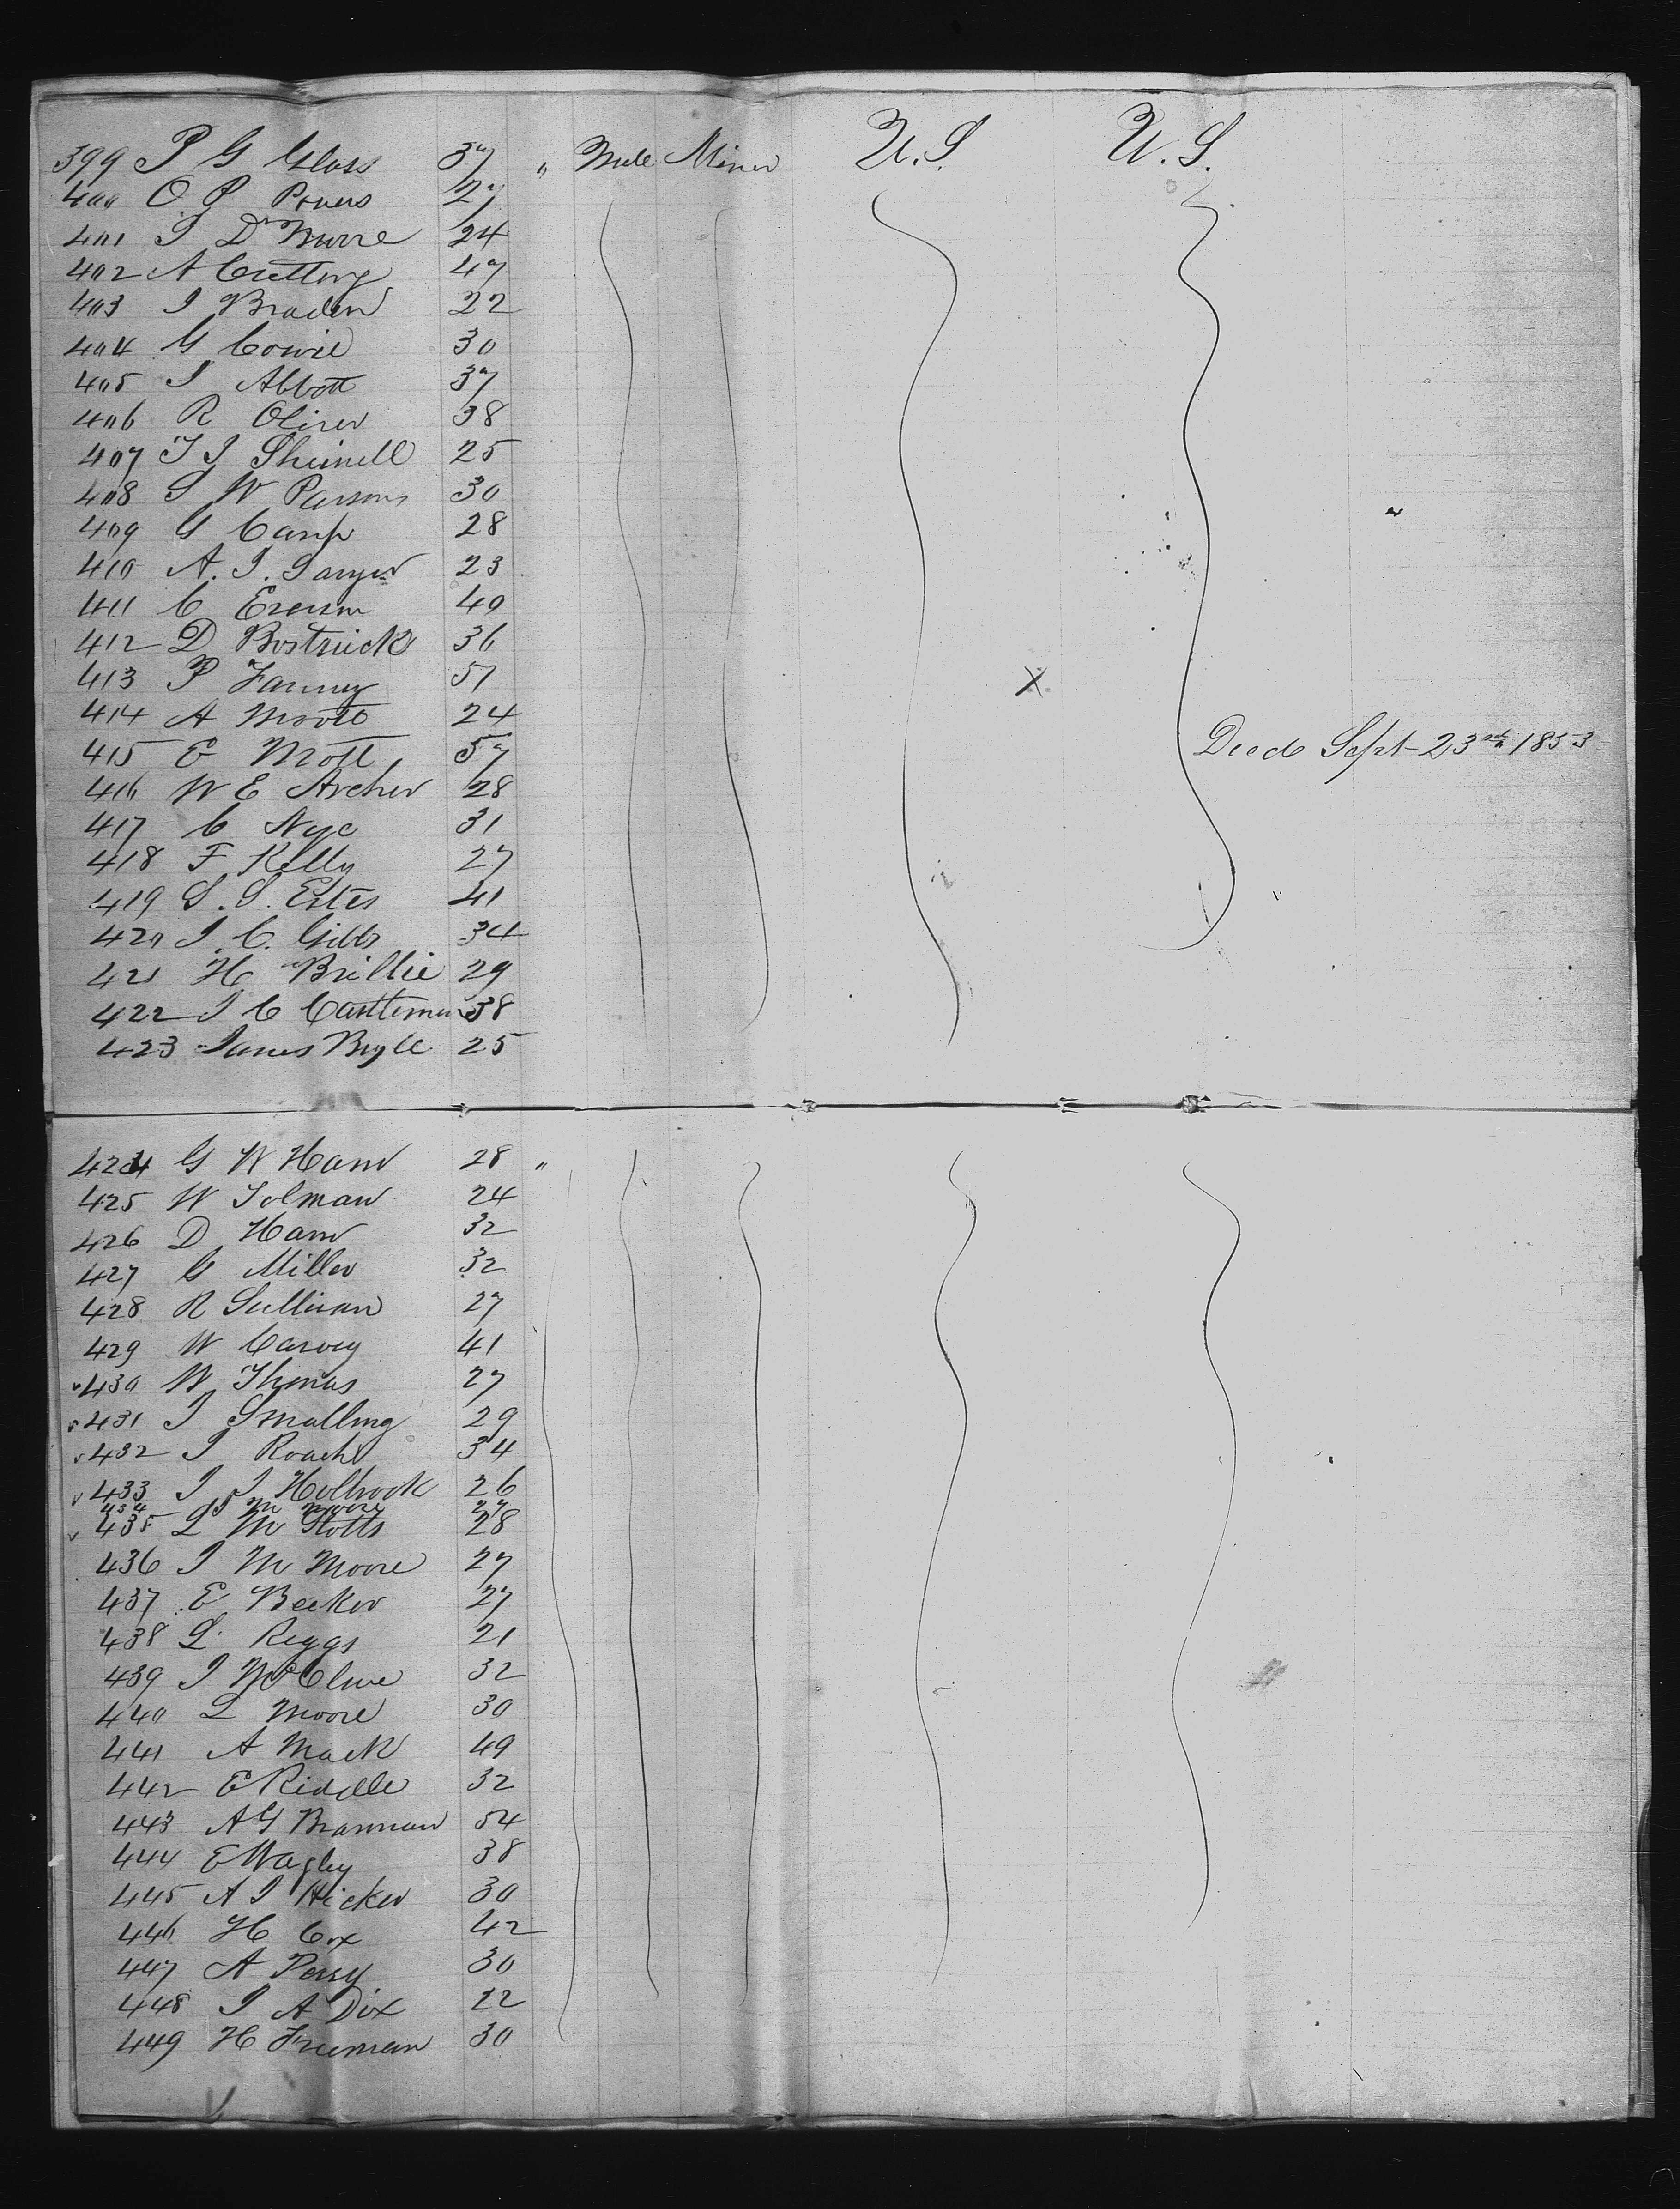 399 P G Glass 37 " Male Miner U.S. U.S.
400 O P Powers 27
401 J D Moore 24
402 A Cutting 47
403 J Braden 22
404 G Cowie 30
405 J Abbott 37
406 R Oliver 38
407 T J 25
408 S W Parsons 30
409 G Camp 28
410 A. J. Sawyer 23
411 C 40
412 D Bostwick 36
413 P 51
414 A 24
415 E Mott 57 Died Sept 23rd 1853
416 W E Archer 28
417 C Nye 31
418 F Kelly 27
419 S. S. Estes 41
420 J. C. Gibbs 34
421 H Brillie 29
422 J C Castleman 38
423 James 25
424 G W Ham 28 "
425 W Tolman 24
426 D Ham 32
427 G Miller 32
428 R Sullivan 27
429 W Carvey 41
430 W Thomas 27
431 J Smalling 29
432 J Roach 34
433 J J Holbrook 26
434 J M Moore 27
435 L M Stotts 28
436 J M Moore 27
437 E Becker 27
438 L Riggs 21
439 J McClure 32
440 L Moore 30
441 A Mack 49
442 E Riddle 32
443 A G Brannan 54
444 E Wagley 38
445 A J Hicker 30
446 H Cox 42
447 A Perry 30
448 J A Dix 22
449 H Freeman 30